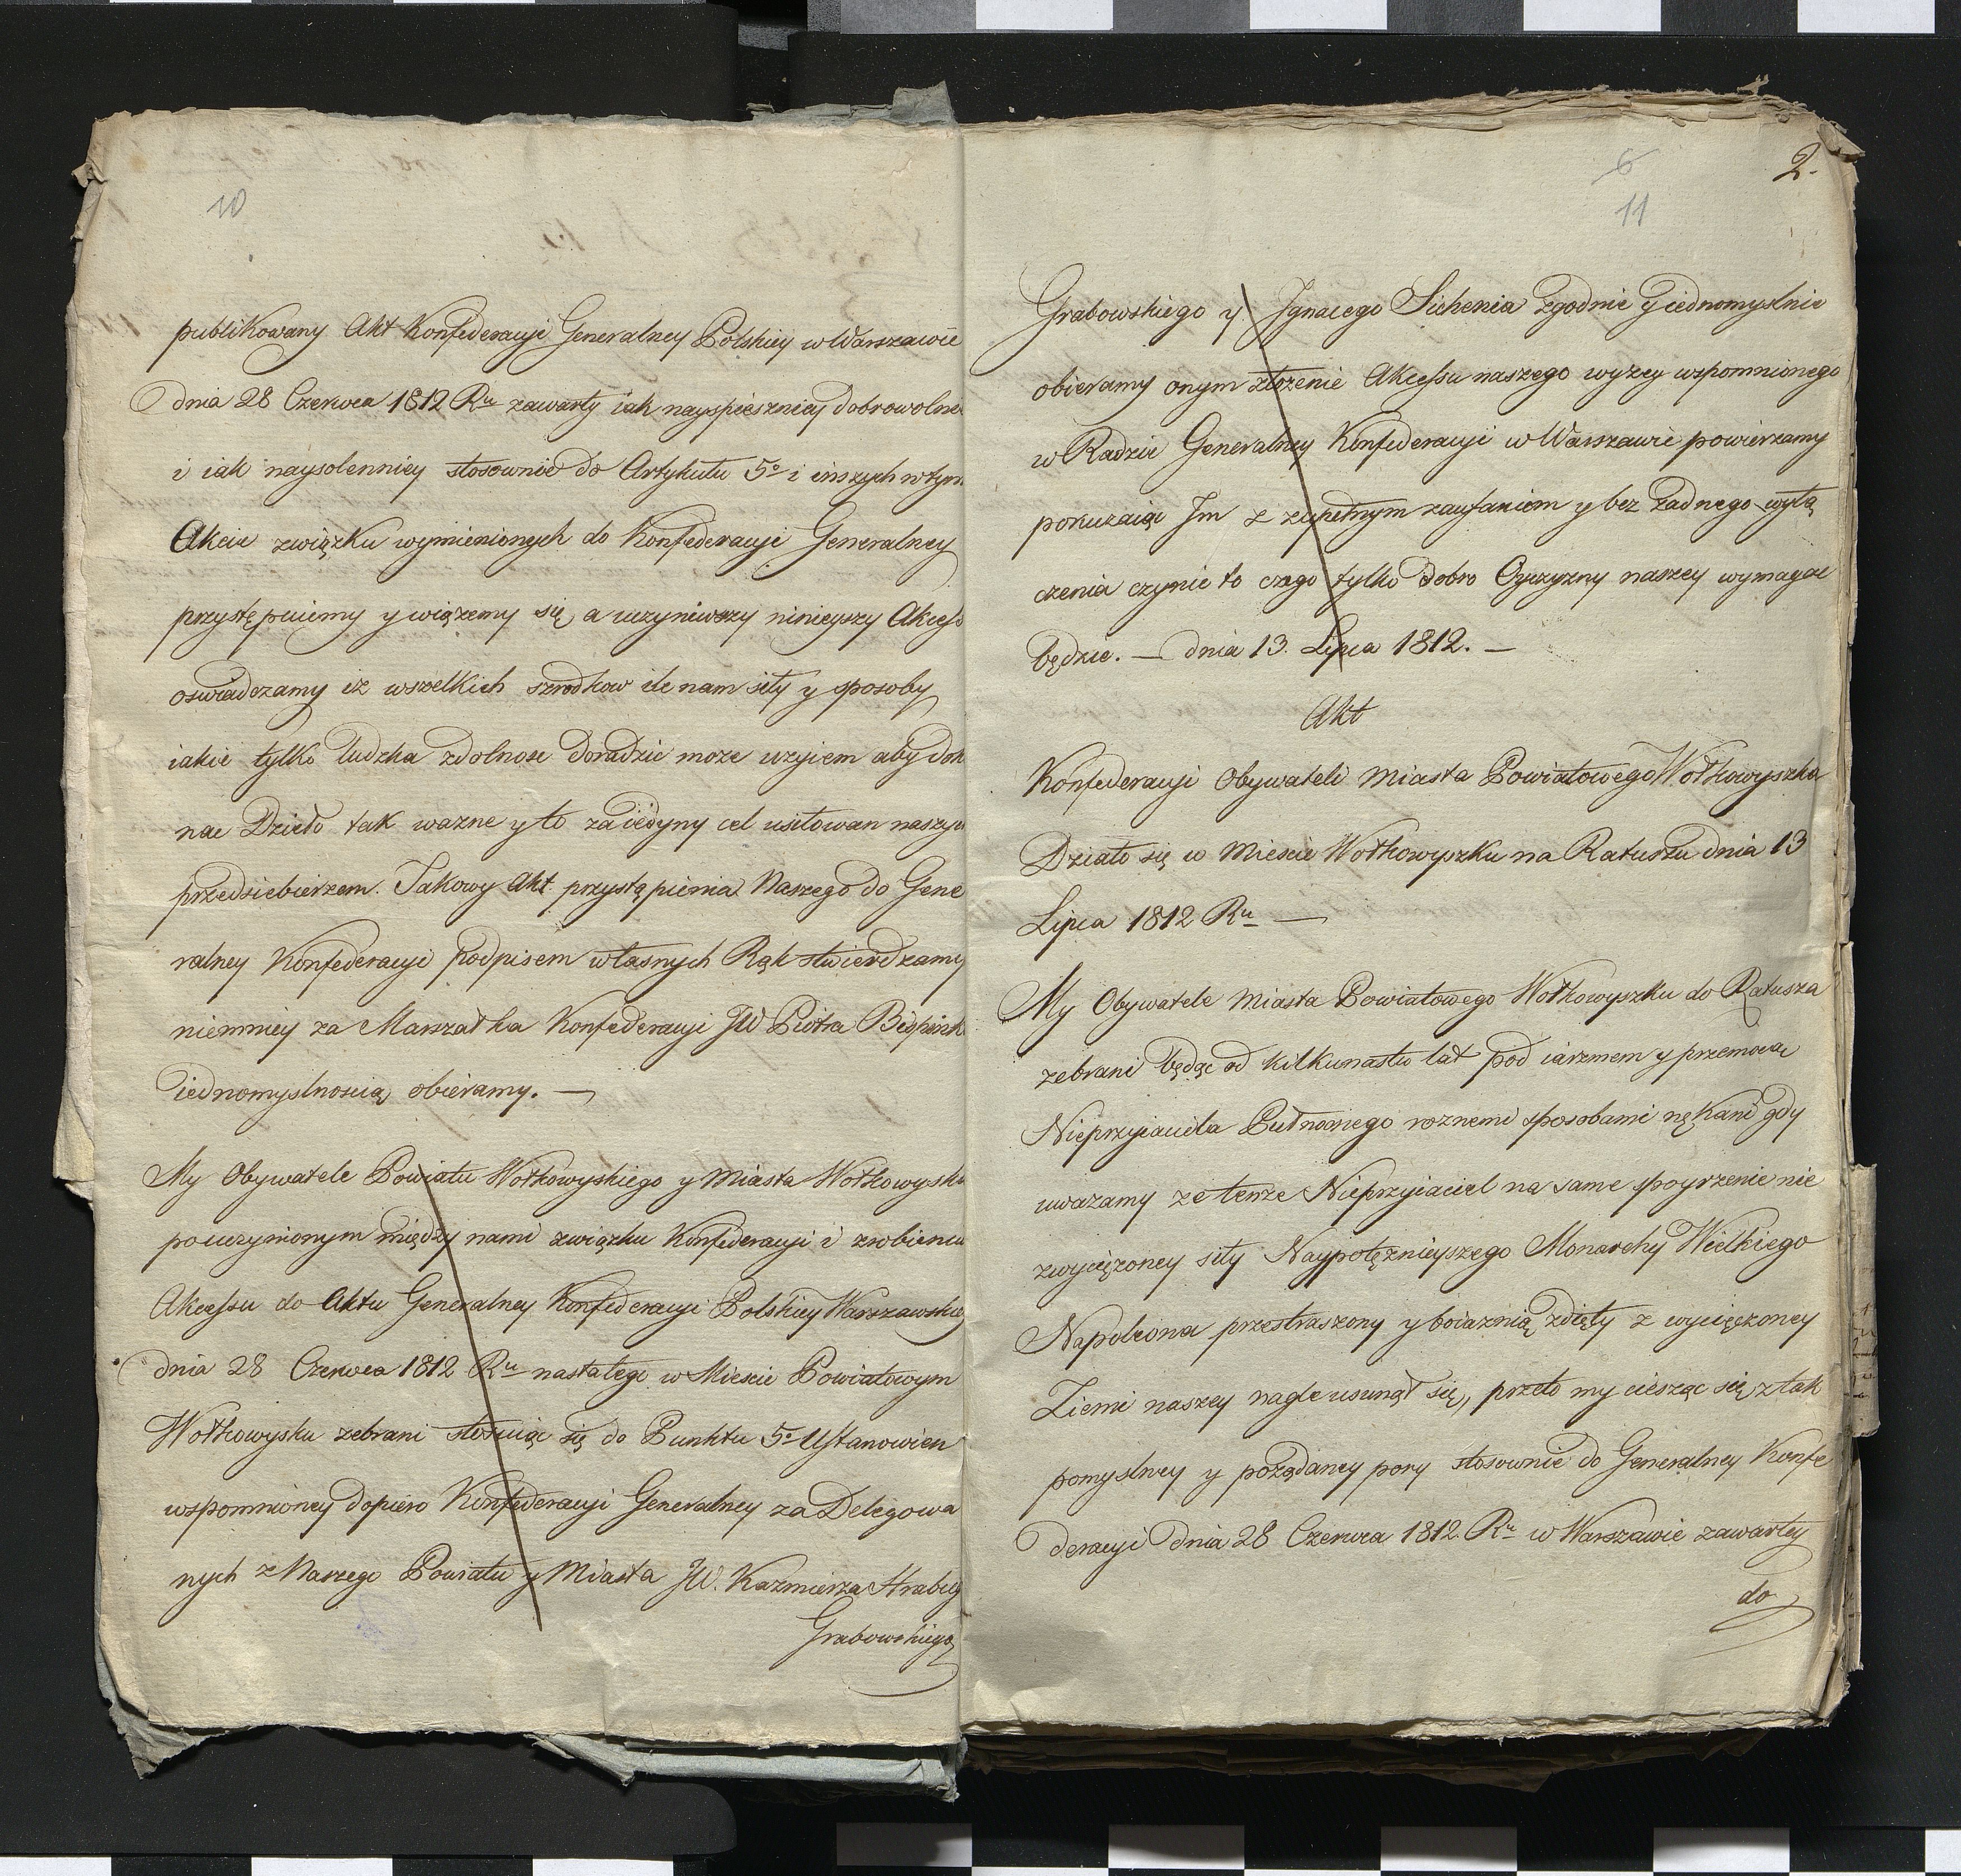 10
publikowany Akt Konfederacyi Generalney Polskiey w Warszawie
dnia 28 Czerwca 1812 Ru zawarty iak nayspieszniey dobrowolne
i iak naysolenniey stosownie do Artykułu 5o i inszych w tym
Akcie związku wymienionych do Konfederacyi Generalney
przystępuiemy y wiążemy się, a uczyniwszy ninieyszy Akces
oswiadczamy iż wszelkich szrodkow ile nam siły y sposoby
iakie tylko ludzka zdolnosc doradzic może użyiem aby dok
nac Dzieło tak ważne y to za iedyny cel usiłowan naszych
przedsiebierzem. Takowy Akt przystąpienia Naszego do Gene
ralney Konfederacyi podpisem własnych Rąk stwierdzamy
niemniey za Marszałka Konfederacyi JW Piotra Bispink
iednomyslnoscią obieramy. —
My Obywatele Powiatu Wołkowyskiego y Miasta Wołkowysku
po uczynionym między nami związku Konfederacyi i zrobieniu
Akcessu do Aktu Generalney Konfederacyi Polskiey Warszawskiey
dnia 28 Czerwca 1812 Ru nastałego w Miescie Powiatowym
Wołkowysku zebrani stosuiąc się do Punktu 5o Ustanowien
wspomnioney dopiero Konfederacyi Generalney za Delegowa
nych z Naszego Powiatu y Miasta JW. Kazmierza Hrabię
Grabowskiego
6
11
2.
Grabowskiego y Jgnacego Sichenia zgodnie y iednomyslnie
obieramy onym złożenie Akcessu naszego wyzey wspomnionego
w Radzie Generalney Konfederacyi w Warszawie powierzamy
poruczaiąc Jm z zupełnym zaufaniem y bez żadnego wyłą
czenia czynic to czego tylko dobro Oyczyzny naszey wymagac
będzie. — dnia 13. Lipca 1812. —
Akt
Konfederacyi Obywateli Miasta Powiatowego Wołkowyszka
Działo się w Miescie Wołkowyszku na Ratuszu dnia 13
Lipca 1812 Ru —
My Obywatele Miasta Powiatowego Wołkowyszku do Ratusza
zebrani będąc od kilkunastu lat pod iarzmem y przemocą
Nieprzyiaciela Pułnocnego roznemi sposobami nękani gdy
uwazamy ze tenze Nieprzyiaciel na same spoyrzenie nie
zwyciężoney siły Naypotęznieyszego Monarchy Wielkiego
Napoleona przestraszony y boiaznią zdięty z wycięczoney
Ziemi naszey nagle usunął się, przeto my ciesząc się z tak
pomyslney y pożądaney pory stosownie do Generalney Konfe
deracyi dnia 28 Czerwca 1812. Ru w Warszawie zawartey
do